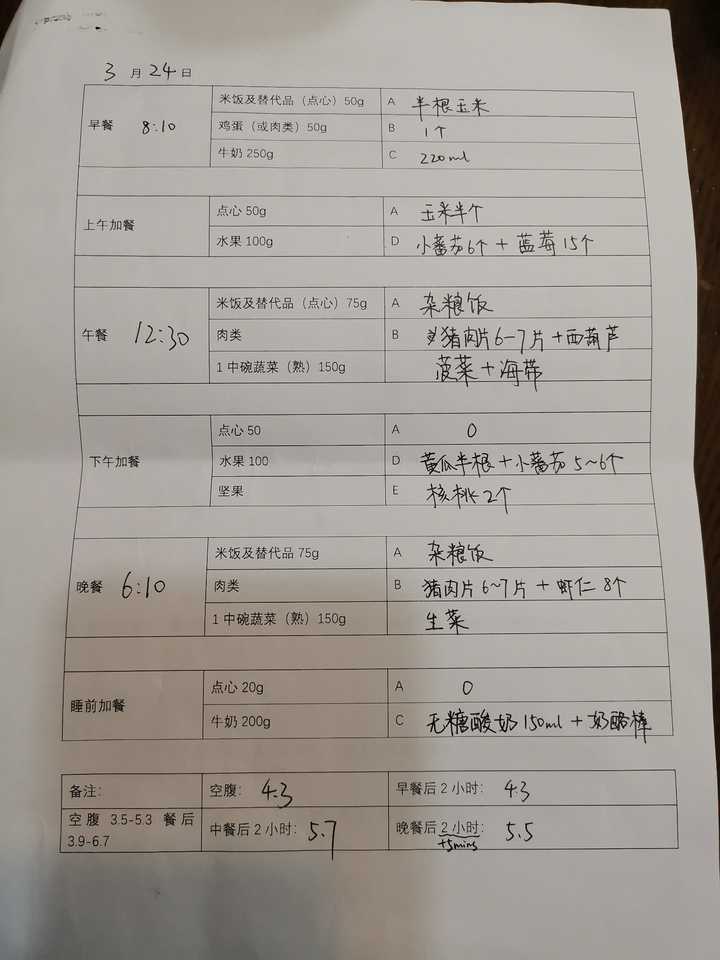 3 月 24 日
早餐 8:10
米饭及替代品（点心）50g A 半根玉米
鸡蛋（或肉类）50g B 1个
牛奶 250g C 220ml
上午加餐
点心 50g A 玉米半个
水果 100g D 小蕃茄6个 + 蓝莓 15个
午餐 12:30
米饭及替代品（点心）75g A 杂粮饭
肉类 B 猪肉片 6-7 片 + 西葫芦
1 中碗蔬菜（熟）150g 菠菜 + 海带
下午加餐
点心 50 A 0
水果 100 D 黄瓜半根 + 小蕃茄 5~6个
坚果 E 核桃 2个
晚餐 6:10
米饭及替代品 75g A 杂粮饭
肉类 B 猪肉片 6~7片 + 虾仁 8个
1 中碗蔬菜（熟）150g 生菜
睡前加餐
点心 20g A 0
牛奶 200g C 无糖酸奶 150ml + 奶酪棒
备注： 空腹： 4.3 早餐后 2 小时： 4.3
空腹 3.5-5.3 餐后
3.9-6.7
中餐后 2 小时： 5.7 晚餐后 2 小时： 5.5
+5mins